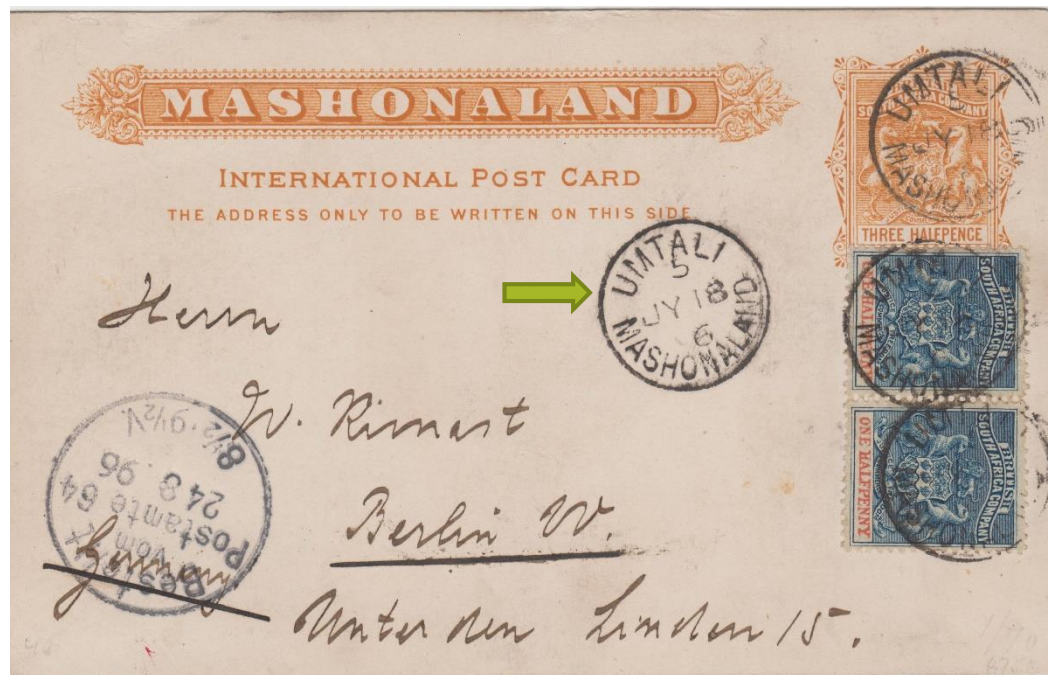 MASHONALAND
INTERNATIONAL POST CARD
THE ADDRESS ONLY TO BE WRITTEN ON THIS SIDE
THREE HALFPENCE
UMTALI
JY 18
UMTALI
5
JY 18
6
MASHONALAND
BRITISH
SOUTH AFRICA COMPANY
ONE HALFPENNY
BRITISH
SOUTH AFRICA COMPANY
ONE HALFPENNY
Herrn
W.
Berlin W.
Germany
Unter den Linden 15.
Bestellt
vom
Postamte 64
24 8 96
8½-9½V.